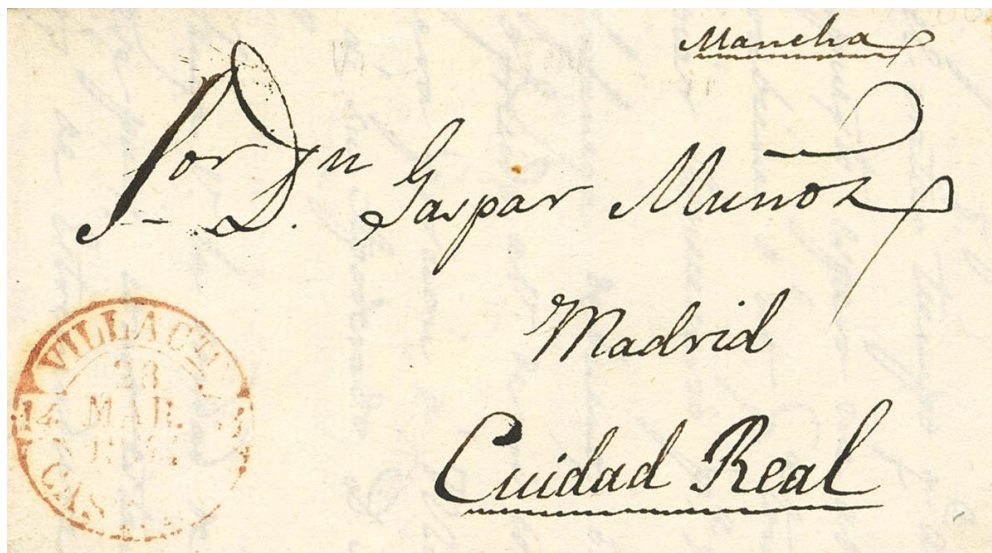 Mancha
Sor Dn
D. Gaspar Muñoz
Madrid
Cuidad Real
VILLACTA
28
MAR.
CAS